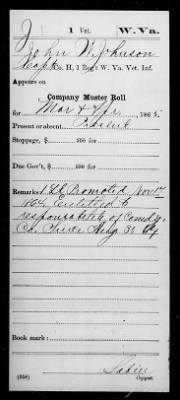 J 1 Vet. W. Va.
John W Johnson
Capt, Co. H, 1 Reg't W. Va. Vet. Inf.
Appears on
Company Muster Roll
for Mar & Apr, 1865.
Present or absent Present
Stoppage, $ 100 for
Due Gov't, $ 100 for
Remarks: 1 Lt. Promoted Nov 17
1864 Entitled to
responsibility of Comdg.
Co. since Aug 31 64
Book mark:
(358) Copyist.